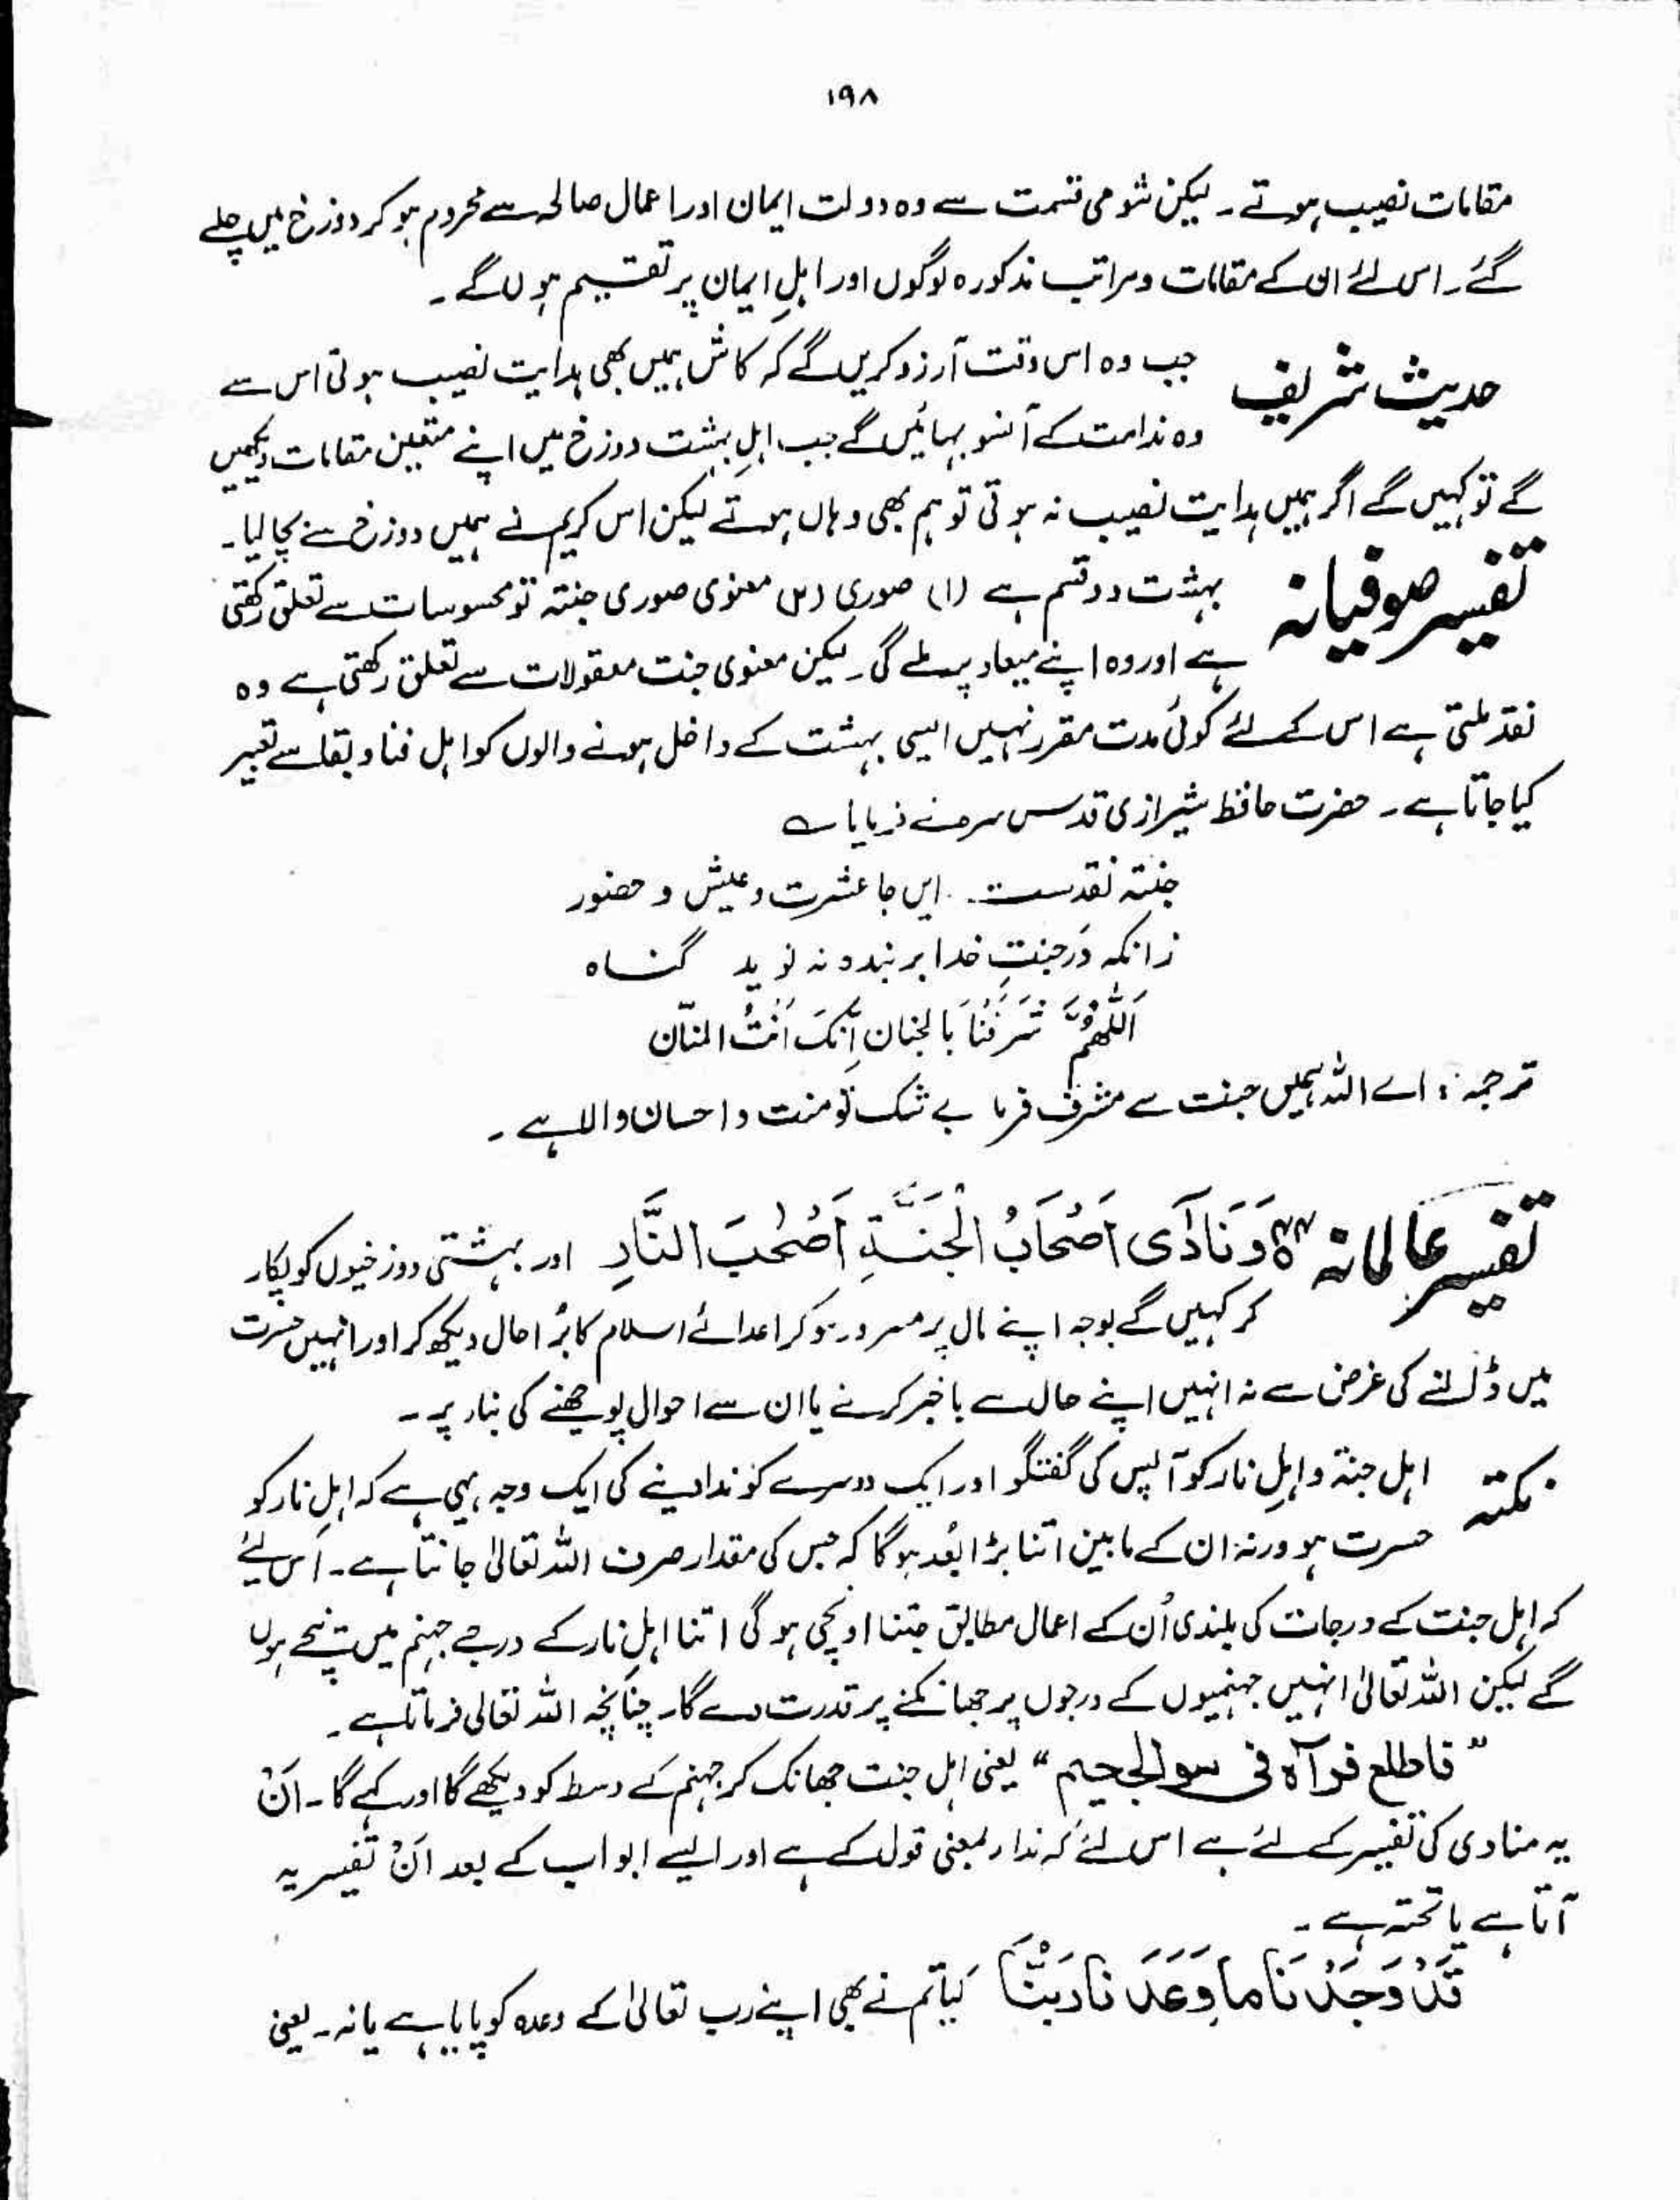 ۱۹۸
مقامات نصیب ہوتے۔ لیکن شومی قسمت سے وہ دولت ایمان اور اعمال صالحہ سے محروم ہو کر دوزخ میں چلے
گئے۔ اس لئے ان کے مقامات و مراتب مذکورہ لوگوں اور اہلِ ایمان پر تقسیم ہوں گے۔
حدیث شریف جب وہ اس وقت آرزو کریں گے کہ کاش ہمیں بھی ہدایت نصیب ہوتی اس سے
وہ ندامت کے آنسو بہائیں گے جب اہلِ بہشت دوزخ میں اپنے متعین مقامات دیکھیں
گے تو کہیں گے اگر ہمیں ہدایت نصیب نہ ہوتی تو ہم بھی وہاں ہوتے لیکن اس کریم نے ہمیں دوزخ سے بچا لیا۔
تفسیر صوفیانہ بہشت دو قسم ہے (۱) صوری (۲) معنوی صوری جنتہ تو محسوسات سے تعلق رکھتی
ہے اور وہ اپنے میعاد پر ملے گی۔ لیکن معنوی جنت معقولات سے تعلق رکھتی ہے وہ
نقد ملتی ہے اس کے لئے کوئی مدت مقرر نہیں ایسی بہشت کے داخل ہونے والوں کو اہل فنا و بقا سے تعبیر
کیا جاتا ہے۔ حضرت حافظ شیرازی قدس سرہ نے فرمایا ؎
جنتہ نقدست ایں جا عشرت و عیش و حضور
زانکہ دَر جنتِ خدا بر بندہ نہ نوید گناہ
اَللّٰھُمَّ شَرَفْنَا بَالجنان اِنَّکَ اَنْتُ المنّان
ترجمہ: اے اللہ ہمیں جنت سے مشرف فرما بے شک تو منت و احسان والا ہے۔
تفسیر عالمانہ وَنَادٰٓی اَصْحَابُ الْجَنَّۃِ اَصْحٰبَ النَّارِ اور بہشتی دوزخیوں کو پکار
کر کہیں گے بوجہ اپنے مال پر مسرور ہو کر اعدائے اسلام کا بُرا حال دیکھ کر اور انہیں حسرت
میں ڈالنے کی غرض سے نہ انہیں اپنے حال سے باخبر کرنے یا ان سے احوال پوچھنے کی بنا پر۔
نکتہ اہل جنۃ و اہلِ نار کو آپس کی گفتگو اور ایک دوسرے کو ندا دینے کی ایک وجہ یہی ہے کہ اہلِ نار کو
حسرت ہو ورنہ ان کے مابین اتنا بڑا بُعد ہوگا کہ جس کی مقدار صرف اللہ تعالیٰ جانتا ہے۔ اس لیے
کہ اہل جنت کے درجات کی بلندی اُن کے اعمال مطابق جتنا اونچی ہو گی اتنا اہلِ نار کے درجے جہنم میں نیچے ہوں
گے لیکن اللہ تعالیٰ انہیں جہنمیوں کے درجوں پر جھانکنے پر قدرت دے گا۔ چنانچہ اللہ تعالی فرماتا ہے۔
”فاطلع فرآہ فی سوالجحیم“ یعنی اہل جنت جھانک کر جہنم کے وسط کو دیکھے گا اور کہے گا۔ اَنْ
یہ منادی کی تفسیر کے لئے ہے اس لئے کہ ندا بمعنی قول کے ہے اور ایسے ابواب کے بعد اَنْ تفسیر یہ
آتا ہے یا تحتہ ہے۔
قَدْ وَجَدْنَا ما وَعَدَنَا رَبُّنَا کیا تم نے بھی اپنے رب تعالیٰ کے وعدہ کو پایا ہے یا نہ۔ یعنی